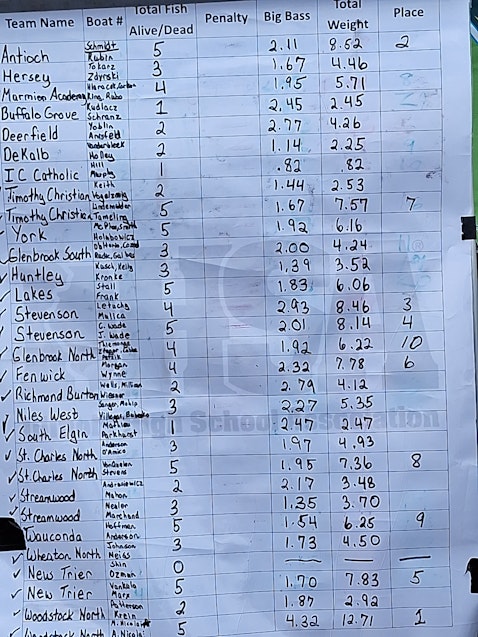 Team Name Boat # Total Fish Alive/Dead Penalty Big Bass Total Weight Place
Antioch Schmidt Rubin 5 2.11 8.52 2
Hersey Tokarz Zdyrski 3 1.67 4.46
Marmion Academy King, Rabo 4 1.95 5.71
Buffalo Grove Kudlacz Schranz 1 2.45 2.45
Deerfield Yoblin Antsfeld 2 2.77 4.26
DeKalb Vanderbleek Holley 2 1.14 2.25
IC Catholic Hill Murphy 1 .82 .82
Timothy Christian Keith 2 1.44 2.53
Timothy Christian Lindemulder Tameling 5 1.67 7.57 7
York McPhee, Smith Holubowicz 5 1.92 6.16
Glenbrook South 3 2.00 4.24
Huntley Kasch, Kelly Kronke 3 1.39 3.52
Lakes Stall Frank 5 1.83 6.06
Stevenson Letuchy Mallica 4 2.93 8.46 3
Stevenson C. Wade J. Wade 5 2.01 8.14 4
Glenbrook North 4 1.92 6.22 10
Fenwick Morgan Wynne 4 2.32 7.78 6
Richmond Burton Wells, Millison Wiesner 2 2.79 4.12
Niles West 3 2.27 5.35
South Elgin Mathieu Parkhurst 1 2.47 2.47
St. Charles North Anderson D'Amico 3 1.97 4.93
St. Charles North VonQualen Stevens 5 1.95 7.36 8
Streamwood Andronowicz Mahon 2 2.17 3.48
Streamwood Nealer Marchand 3 1.35 3.70
Wauconda Hoffman Anderson 5 1.54 6.25 9
Wheaton North Johnson Neigs 3 1.73 4.50
New Trier Shin Ozmen 0 — — —
New Trier Vankalo Marx 5 1.70 7.83 5
Woodstock North Patterson Krein 2 1.87 2.92
Woodstock North M. Nicolai A. Nicolai 5 4.32 12.71 1